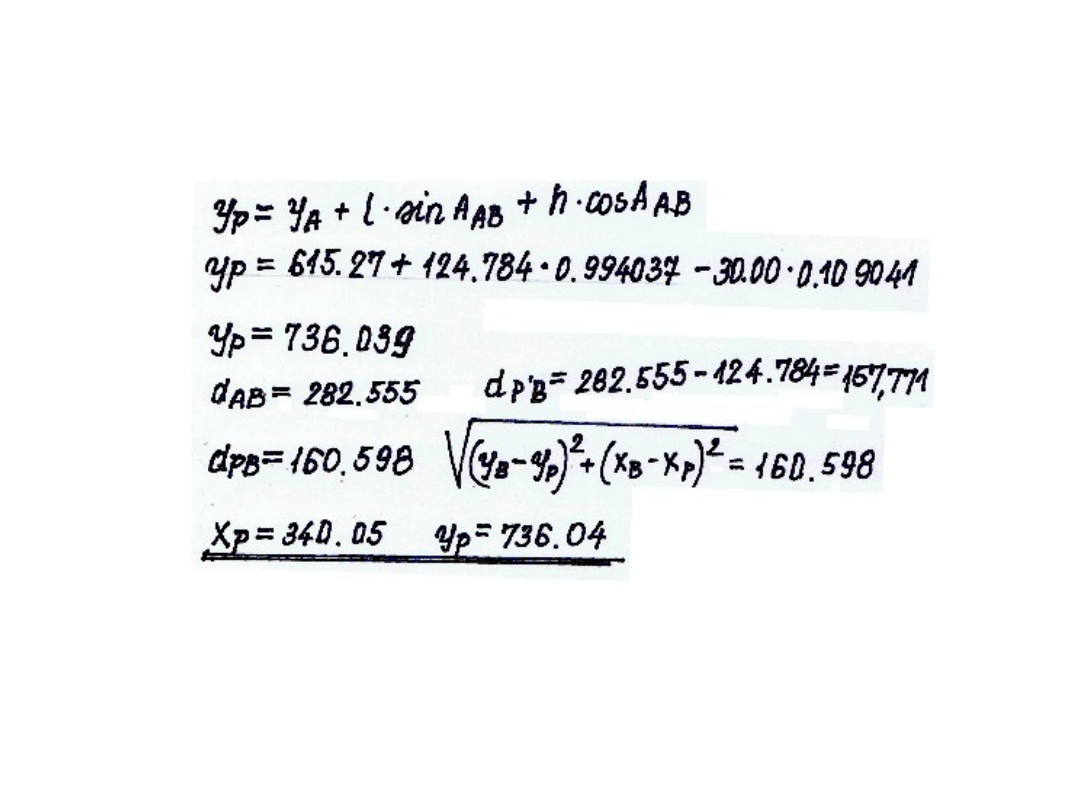 yp = yA + l · sin A AB + h · cos A AB
yp = 615.27 + 124.784 · 0.994037 - 30.00 · 0.109041
yp = 736.039
dAB = 282.555 dP'B = 282.555 - 124.784 = 157,771
dPB = 160.598 √(yB - yp)² + (xB - xp)² = 160.598
xp = 340.05 yp = 736.04